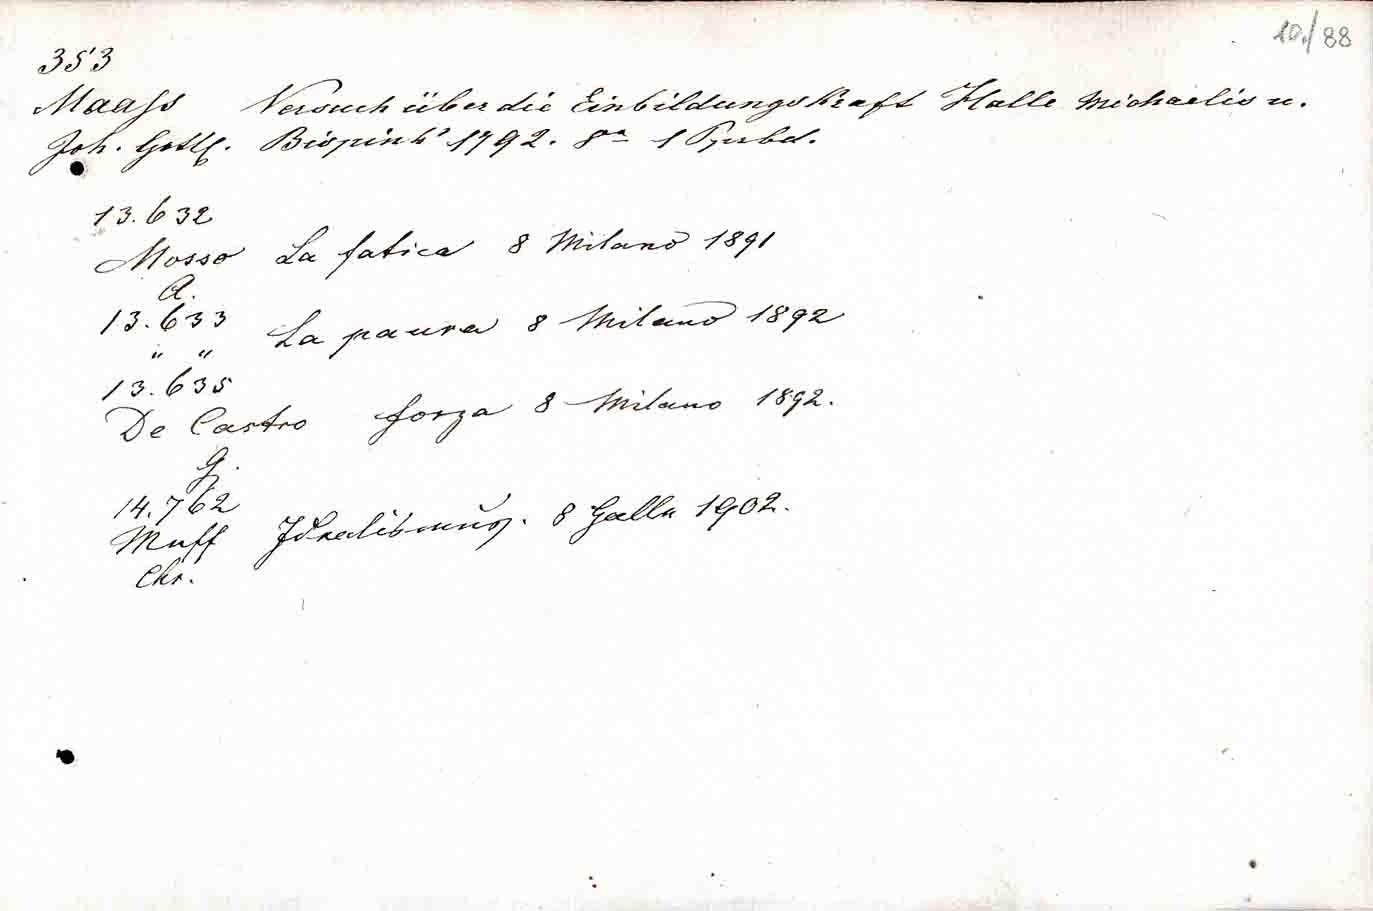 10./88
353
Maaſs Versuch über die Einbildungskraft Halle Michaelis u.
Joh. Gottl. Bispink 1792. 8° 1 Pprbd.
13.632
Mosso La fatica 8 Milano 1891
A.
13.633
" " La paura 8 Milano 1892
13.635
De Castro forza 8 Milano 1892.
G.
14.762
Muff Idealismus. 8 Halle 1902.
Chr.